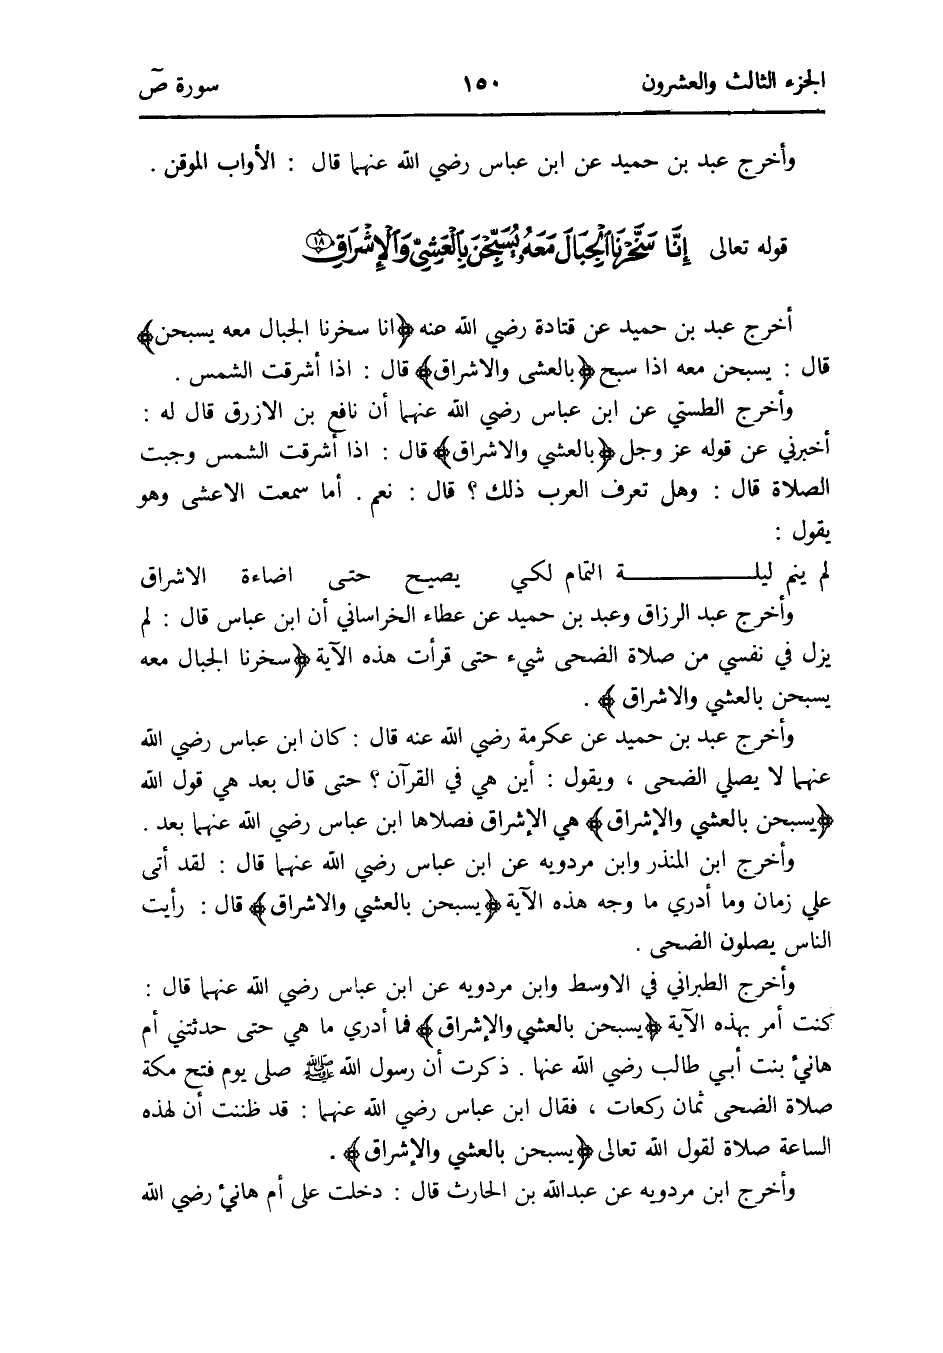 الجزء الثالث والعشرون ١٥٠ سورة صٓ
وأخرج عبد بن حميد عن ابن عباس رضي الله عنهما قال : الأواب الموقن .
قوله تعالى إِنَّا سَخَّرْنَا ٱلْجِبَالَ مَعَهُۥ يُسَبِّحْنَ بِٱلْعَشِىِّ وَٱلْإِشْرَاقِ ١٨
أخرج عبد بن حميد عن قتادة رضي الله عنه ﴿انا سخرنا الجبال معه يسبحن﴾
قال : يسبحن معه اذا سبح ﴿بالعشى والاشراق﴾ قال : اذا أشرقت الشمس .
وأخرج الطستي عن ابن عباس رضي الله عنهما أن نافع بن الازرق قال له :
أخبرني عن قوله عز وجل ﴿بالعشي والاشراق﴾ قال : اذا أشرقت الشمس وجبت
الصلاة قال : وهل تعرف العرب ذلك ؟ قال : نعم . أما سمعت الاعشى وهو
يقول :
لم ينم ليلـــــــــــة التمام لكي يصيح حتى اضاءة الاشراق
وأخرج عبد الرزاق وعبد بن حميد عن عطاء الخراساني أن ابن عباس قال : لم
يزل في نفسي من صلاة الضحى شيء حتى قرأت هذه الآية ﴿سخرنا الجبال معه
يسبحن بالعشي والاشراق ﴾ .
وأخرج عبد بن حميد عن عكرمة رضي الله عنه قال : كان ابن عباس رضي الله
عنهما لا يصلي الضحى ، ويقول : أين هي في القرآن ؟ حتى قال بعد هي قول الله
﴿يسبحن بالعشي والإشراق﴾ هي الإشراق فصلاها ابن عباس رضي الله عنهما بعد .
وأخرج ابن المنذر وابن مردويه عن ابن عباس رضي الله عنهما قال : لقد أتى
علي زمان وما أدري ما وجه هذه الآية ﴿يسبحن بالعشي والاشراق﴾ قال : رأيت
الناس يصلون الضحى .
وأخرج الطبراني في الاوسط وابن مردويه عن ابن عباس رضي الله عنهما قال :
كنت أمر بهذه الآية ﴿يسبحن بالعشي والإشراق﴾ فما أدري ما هي حتى حدثتني أم
هانئ بنت أبي طالب رضي الله عنها . ذكرت أن رسول الله ﷺ صلى يوم فتح مكة
صلاة الضحى ثمان ركعات ، فقال ابن عباس رضي الله عنهما : قد ظننت أن لهذه
الساعة صلاة لقول الله تعالى ﴿يسبحن بالعشي والإشراق﴾ .
وأخرج ابن مردويه عن عبدالله بن الحارث قال : دخلت على أم هانئ رضي الله